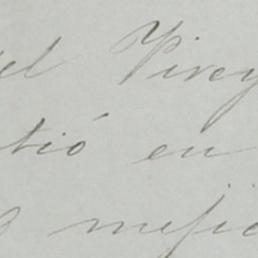 el Virey
tió en
mejic